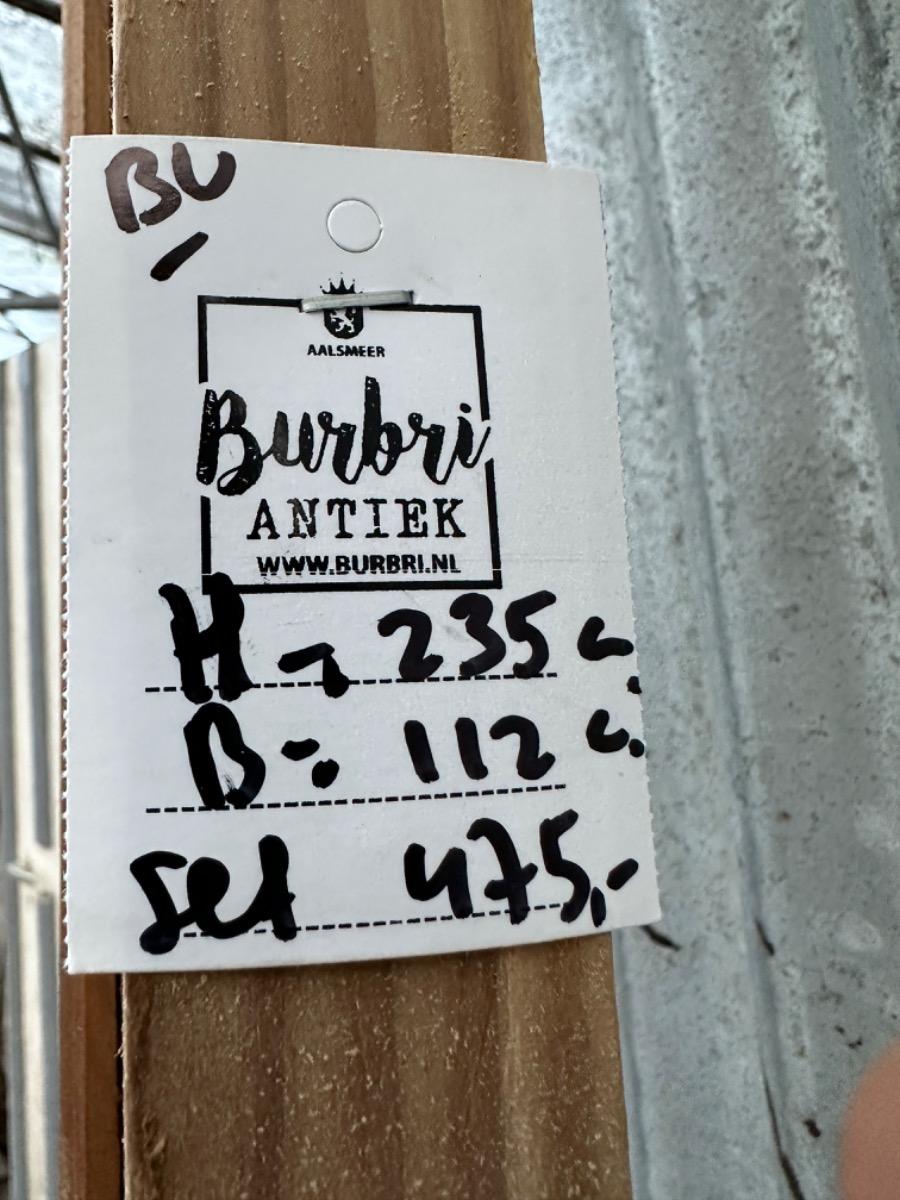 BU
-
AALSMEER
Burbri
ANTIEK
WWW.BURBRI.NL
H - 235 c.
B-: 112 c.
Set 475,-